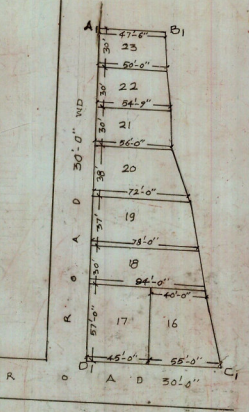 A1 B1
47'-6"
30' 23
50'-0"
30' 22
54'-9"
30' 21
56'-0"
38' 20
72'-0"
37' 19
78'-0"
30' 18
84'-0"
40'-0"
57'-0" 17 16
D1 45'-0" 55'-0" C1
30'-0" WD
ROAD
ROAD 30'-0"